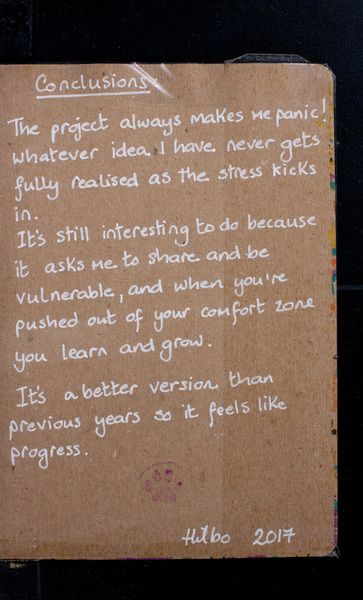 Conclusions.
The project always makes me panic!
whatever idea I have never gets
fully realised as the stress kicks
in.
It's still interesting to do because
it asks me to share and be
vulnerable, and when you're
pushed out of your comfort zone
you learn and grow.
It's a better version than
previous years so it feels like
progress.
Hilbo 2017